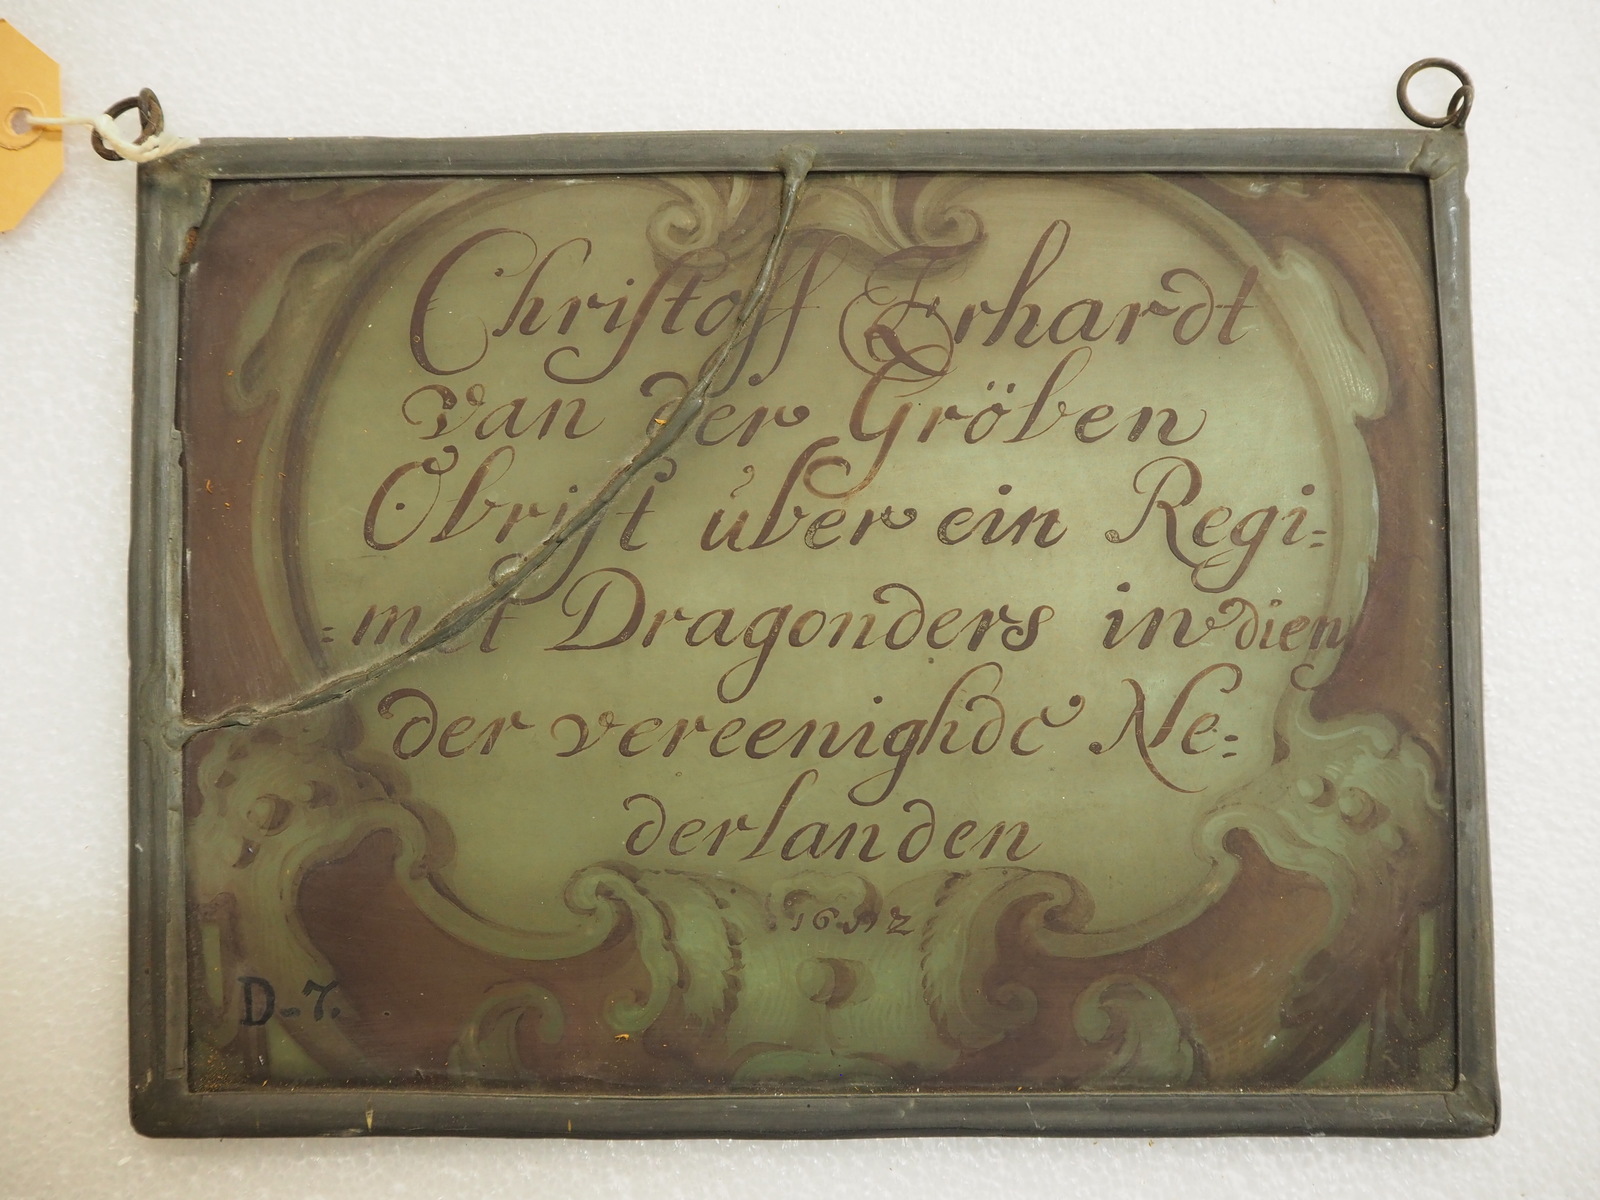 Christoff Erhardt
van der Gröben
Obrist über ein Regi=
=met Dragonders in dien
der vereenighde Ne=
derlanden
1692
D-7.